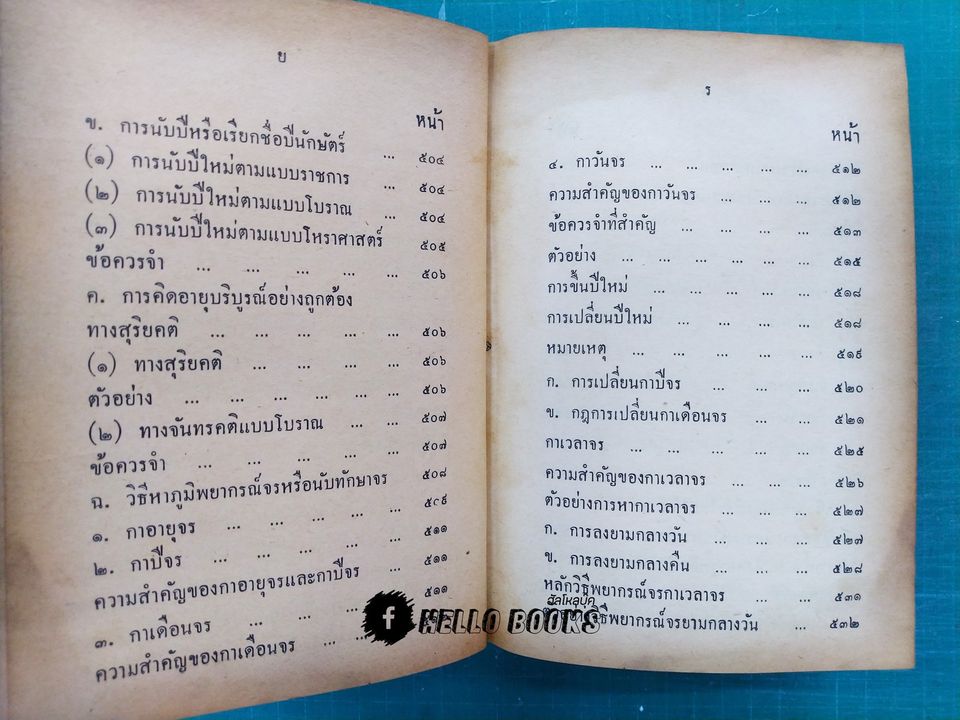 ย
หน้า
ข. การนับปีหรือเรียกชื่อปีนักษัตร์ ... ๕๐๔
(๑) การนับปีใหม่ตามแบบราชการ ... ๕๐๔
(๒) การนับปีใหม่ตามแบบโบราณ ... ๕๐๔
(๓) การนับปีใหม่ตามแบบโหราศาสตร์ ๕๐๕
ข้อควรจำ ... ... ... ... ... ๕๐๖
ค. การคิดอายุบริบูรณ์อย่างถูกต้อง
ทางสุริยคติ ... ... ... ... ... ๕๐๖
(๑) ทางสุริยคติ ... ... ... ... ๕๐๖
ตัวอย่าง ... ... ... ... ... ... ๕๐๖
(๒) ทางจันทรคติแบบโบราณ ... ... ๕๐๗
ข้อควรจำ ... ... ... ... ... ๕๐๗
ฉ. วิธีหาภูมิพยากรณ์จรหรือนับทักษาจร ๕๐๘
๑. กาอายุจร ... ... ... ... ... ๕๐๙
๒. กาปีจร ... ... ... ... ... ๕๑๑
ความสำคัญของกาอายุจรและกาปีจร ... ๕๑๑
๓. กาเดือนจร ... ... ... ๕๑๑
ความสำคัญของกาเดือนจร ... ...
ร
หน้า
๔. กาวันจร ... ... ... ... ... ๕๑๒
ความสำคัญของกาวันจร ... ... ... ๕๑๒
ข้อควรจำที่สำคัญ ... ... ... ... ๕๑๓
ตัวอย่าง ... ... ... ... ... ๕๑๕
การขึ้นปีใหม่ ... ... ... ... ... ๕๑๘
การเปลี่ยนปีใหม่ ... ... ... ... ๕๑๘
หมายเหตุ ... ... ... ... ... ๕๑๙
ก. การเปลี่ยนกาปีจร ... ... ... ๕๒๐
ข. กฎการเปลี่ยนกาเดือนจร ... ... ... ๕๒๑
กาเวลาจร ... ... ... ... ... ๕๒๕
ความสำคัญของกาเวลาจร ... ... ... ๕๒๖
ตัวอย่างการหากาเวลาจร ... ... ... ๕๒๗
ก. การลงยามกลางวัน ... ... ... ๕๒๗
ข. การลงยามกลางคืน ... ... ... ๕๒๘
หลักวิธีพยากรณ์จรกาเวลาจร ... ... ๕๓๑
วิธีพยากรณ์จรยามกลางวัน ... ๕๓๒
ฮัลโหลบุ๊ค
f HELLO BOOKS